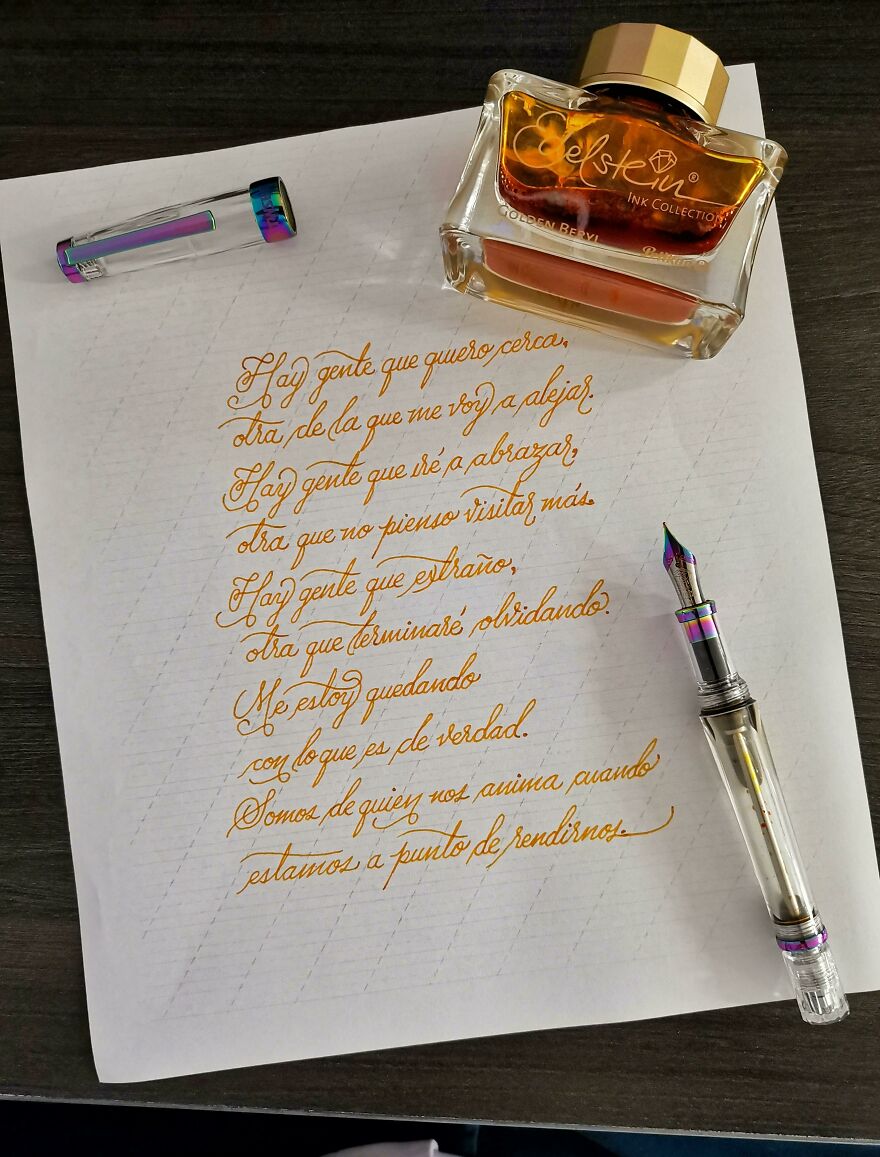 Edelstein®
INK COLLECTION
GOLDEN BERYL
Pelikan
Hay gente que quiero cerca,
otra de la que me voy a alejar.
Hay gente que iré a abrazar,
otra que no pienso visitar más.
Hay gente que extraño,
otra que terminaré olvidando.
Me estoy quedando
con lo que es de verdad.
Somos de quien nos anima cuando
estamos a punto de rendirnos.